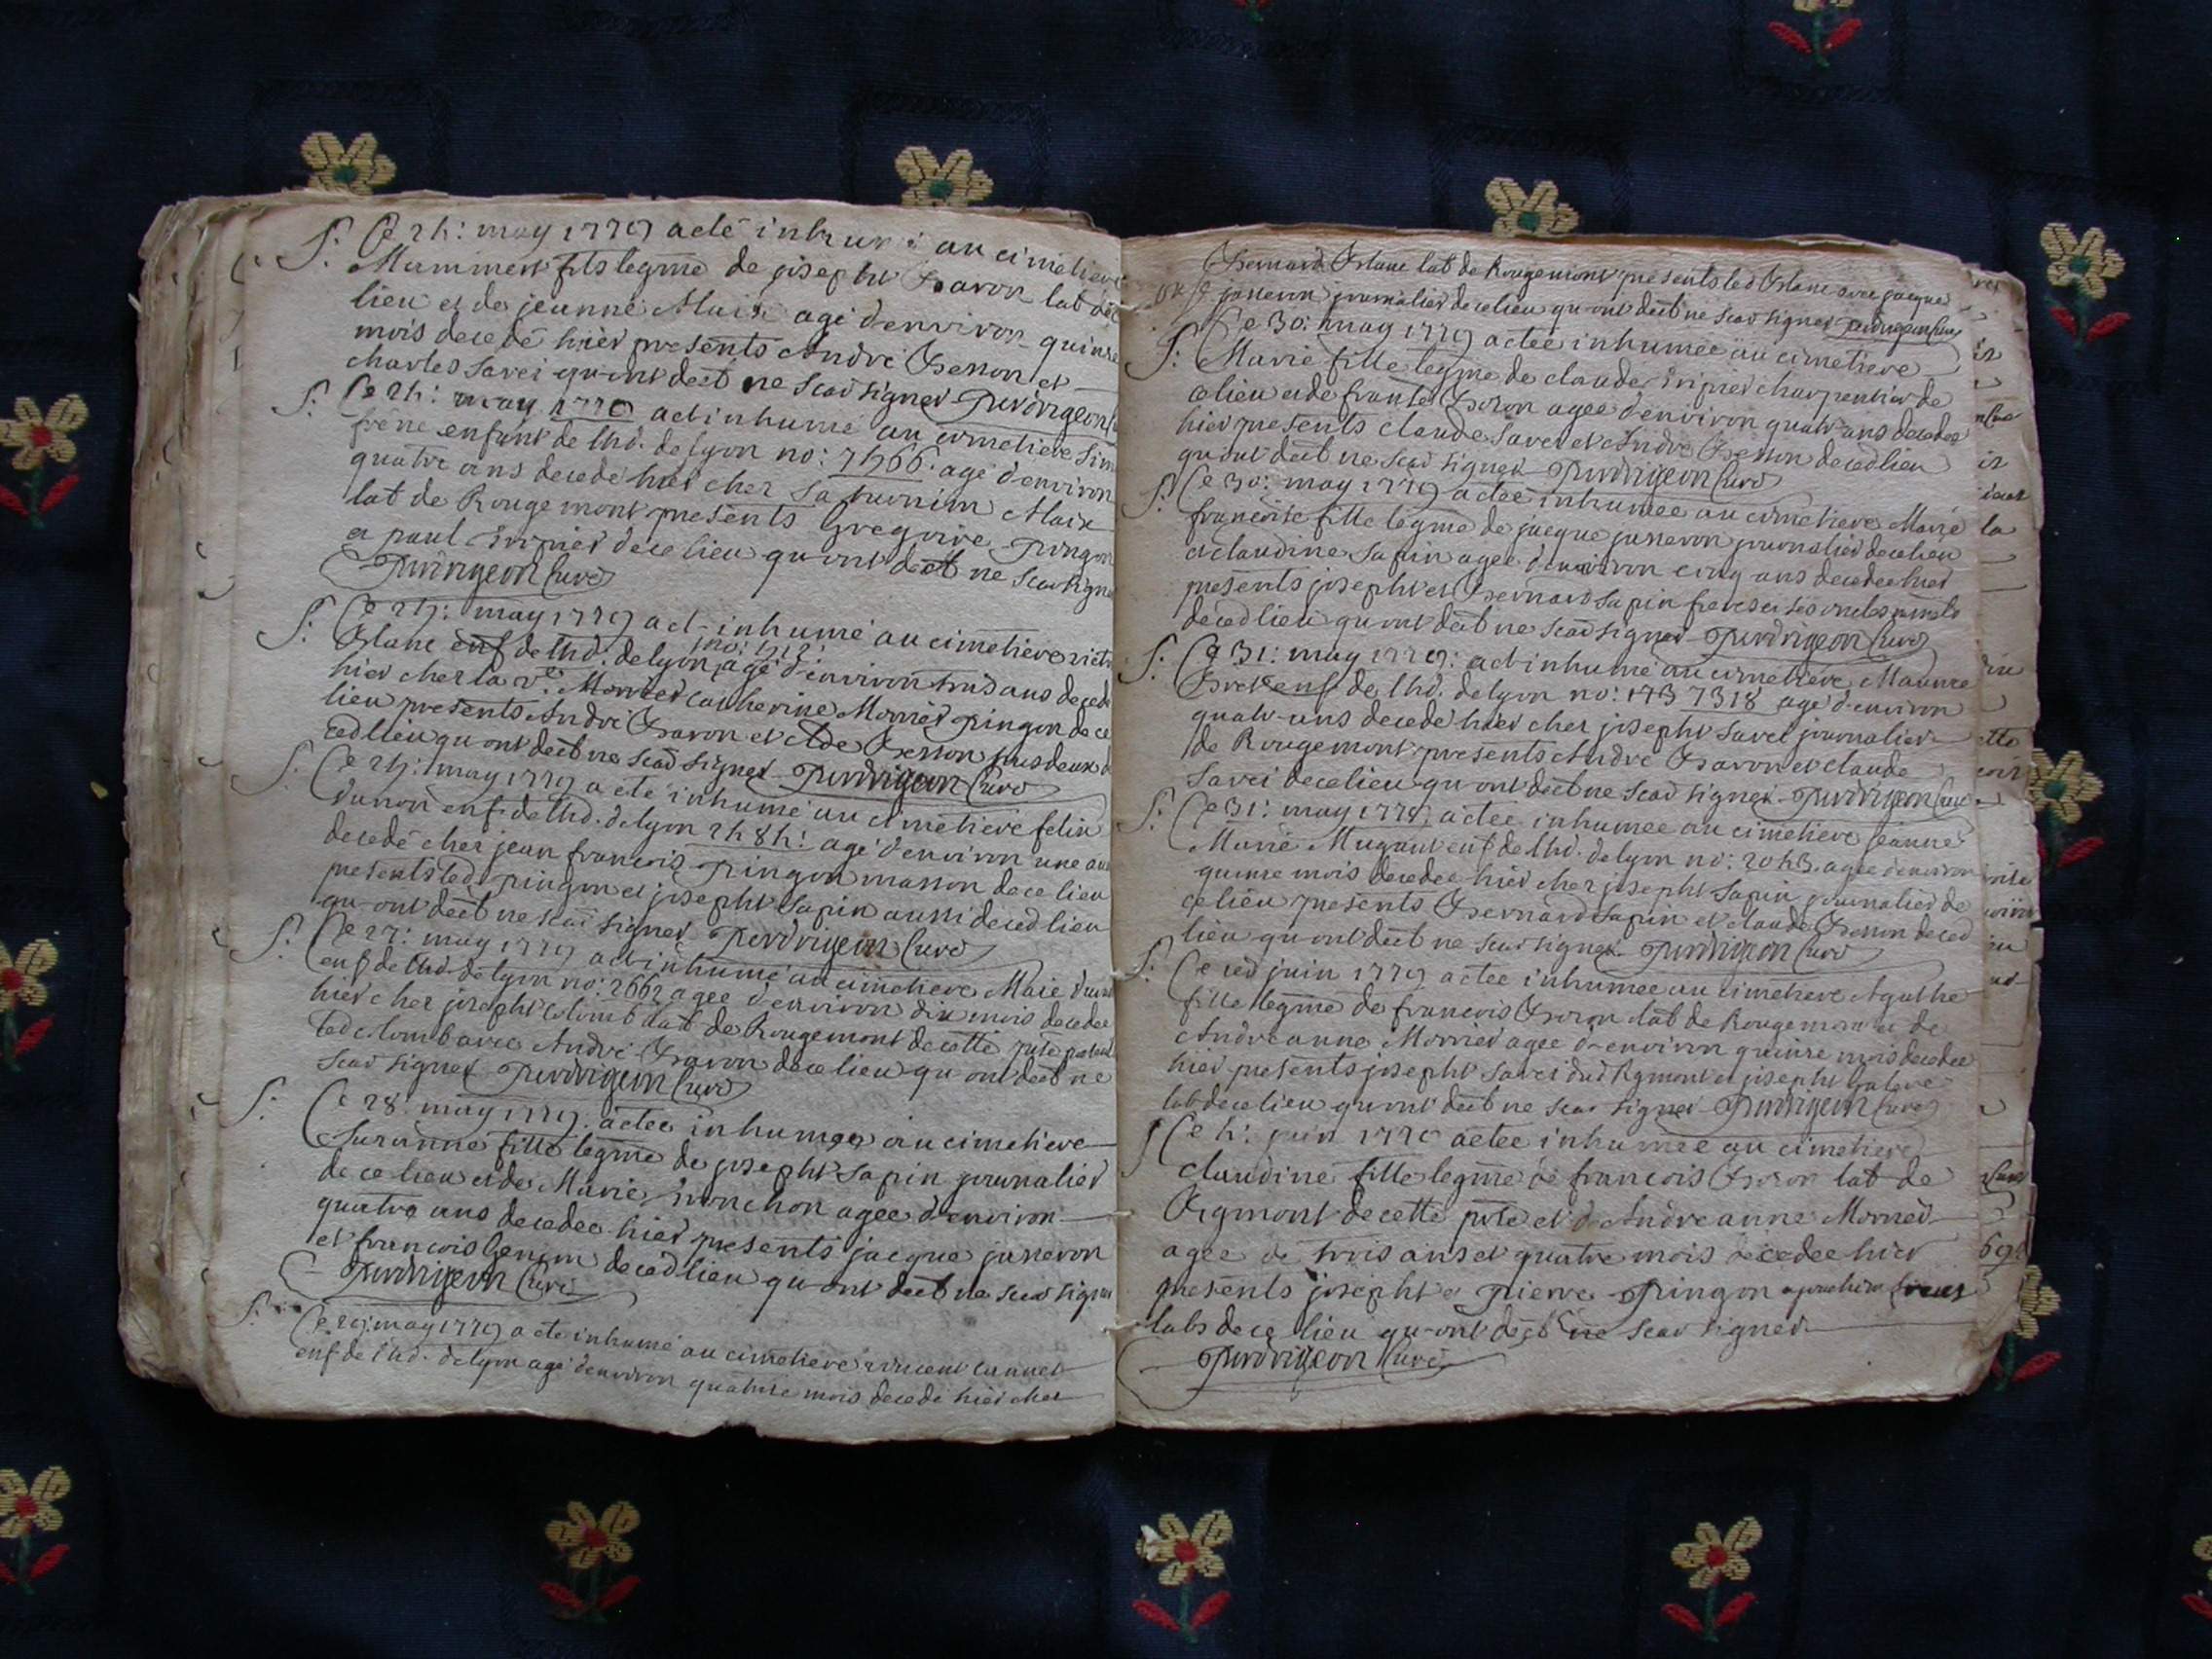 S. Ce 24: may 1779 a eté inhumé au cimetiere
Mammert fils legme de joseph Baron lab de ce
lieu et de jeanne Maix agé d'environ quinze
mois decedé hier presents André Besson et
charles Savei qu-ont deêt ne scav signer Perdrigeon
S. Ce 24: may 1779 a et inhumé au cimetiere
frene enfant de lhd. de lyon no: 7466. agé d'environ
quatre ans decedé hier cher Saturnin Maix
lab de Rougemont presents Gregoire Pingon
et paul de ce lieu qu-ont deêt ne scav signe
Perdrigeon Curé
S. Ce 25: may 1779 a et inhumé au cimetiere
Blanc enf de lhd. de lyon agé d'environ trois ans decedé
hier cher la ve. Mornier catherine Mornier Pingon de ce
lieu presents André Baron et Besson
ced lieu qu-ont deêt ne scav signer Perdrigeon Curé
S. Ce 25: may 1779 a eté inhumé au cimetiere felix
enf. de lhd. de lyon 2484: agé d'environ une an
decedé cher jean francois Pingon masson de ce lieu
presents led Pingon et joseph Sapin aussi de ced lieu
qu-ont deêt ne scav signer Perdrigeon Curé
S. Ce 27: may 1779 a et inhumé au cimetiere Marie
enf de lhd. de lyon no: 2662 agée d'environ dix mois decedee
hier cher joseph Colomb lab de Rougemont de cette
led Colomb avec André Baron de ce lieu qu ont deêt ne
scav signer Perdrigeon Curé
S. Ce 28: may 1779. a etee inhumee au cimetiere
Susanne fille legme de joseph Sapin journalier
de ce lieu et de Marie Tronchon agee d'environ
quatre ans decedee hier presents jacque janneron
et francois de ced lieu qu-ont deêt ne scav signer
Perdrigeon Curé
S. Ce 29: may 1779 a eté inhumé au cimetiere vincent
enf de lhd. de lyon agé d'environ quatorze mois decedé hier cher
Bernard Blanc lab de Rougemont presents led Blanc avec jacque
janneron journalier de ce lieu qu-ont deêt ne scav signer Perdrigeon Curé
S. Ce 30: may 1779 a etee inhumée au cimetiere
Marie fille legme de claude charpentier de
ce lieu et de Boron agee d'environ quatre ans decedee
hier presents claude Savei et André Besson de ced lieu
qu-ont deêt ne scav signer Perdrigeon Curé
S. Ce 30: may 1779 a etee inhumee au cimetiere Marie
francoise fille legme de jacque janneron journalier de ce lieu
et claudine Sapin agee d'environ cinq ans decedee hier
presents joseph et Bernard Sapin freres et ses oncles
de ced lieu qu-ont deêt ne scav signer Perdrigeon Curé
S. Ce 31: may 1779: a et inhumé au cimetiere Maurice
enf de lhd. de lyon no: 173 7318 agé d'environ
quatre ans decedé hier cher joseph Savei journalier
de Rougemont presents André Baron et claude
Savei de ce lieu qu-ont deêt ne scav signer Perdrigeon Curé
S. Ce 31: may 1779 a etee inhumee au cimetiere jeanne
Marie enf de lhd. de lyon no: 2043. agee d'environ
quinze mois decedee hier cher joseph Sapin journalier de
ce lieu presents Bernard Sapin et claude Besson de ced
lieu qu-ont deêt ne scav signer. Perdrigeon Curé
S. Ce 1er juin 1779 a etee inhumee au cimetiere Agathe
fille legme de francois Boron lab de Rougemont et de
Andreanne Mornier agee d'environ quinze mois decedee
hier presents joseph Savei dud Rgmont et joseph
lab de ce lieu qu-ont deêt ne scav signer Perdrigeon Curé
S. Ce 4: juin 1779 a etee inhumee au cimetiere
claudine fille legme de francois Boron lab de
Rgmont de cette et d'Andreanne Mornier
agee de trois ans et quatre mois decedee hier
presents joseph et Pierre Pingon
labs de ce lieu qu-ont deêt ne scav signer
Perdrigeon Curé